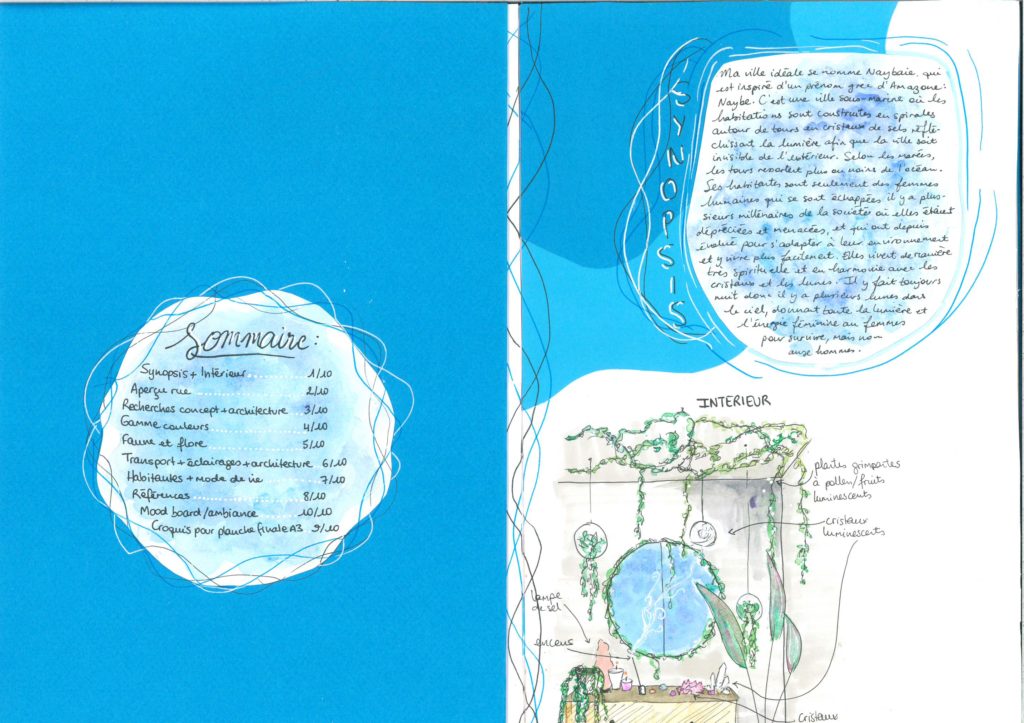 Sommaire :
Synopsis + Intérieur ........ 1/10
Aperçu rue ........ 2/10
Recherches concept + architecture 3/10
Gamme couleurs ........ 4/10
Faune et flore ........ 5/10
Transport + éclairages + architecture 6/10
Habitantes + mode de vie ........ 7/10
Références ........ 8/10
Mood board/ambiance ........ 10/10
Croquis pour planche finale A3 9/10
SYNOPSIS
Ma ville idéale se nomme Naybaie, qui
est inspiré d'un prénom grec d'Amazone :
Naybe. C'est une ville sous-marine où les
habitations sont construites en spirales
autour de tours en cristaux de sels réflé-
chissant la lumière afin que la ville soit
invisible de l'extérieur. Selon les marées,
les tours ressortent plus ou moins de l'océan.
Ses habitantes sont seulement des femmes
humaines qui se sont échappées il y a plu-
sieurs millénaires de la société où elles étaient
dépréciées et menacées, et qui ont depuis
évolué pour s'adapter à leur environnement
et y vivre plus facilement. Elles vivent de manière
très spirituelle et en harmonie avec les
cristaux et les lunes. Il y fait toujours
nuit donc il y a plusieurs lunes dans
le ciel, donnant toute la lumière et
l'énergie féminine au femmes
pour survivre, mais non
aux hommes.
INTERIEUR
plantes grimpantes
à pollen/fruits
luminescents
cristaux
luminescents
lampe
de sel
encens
cristaux